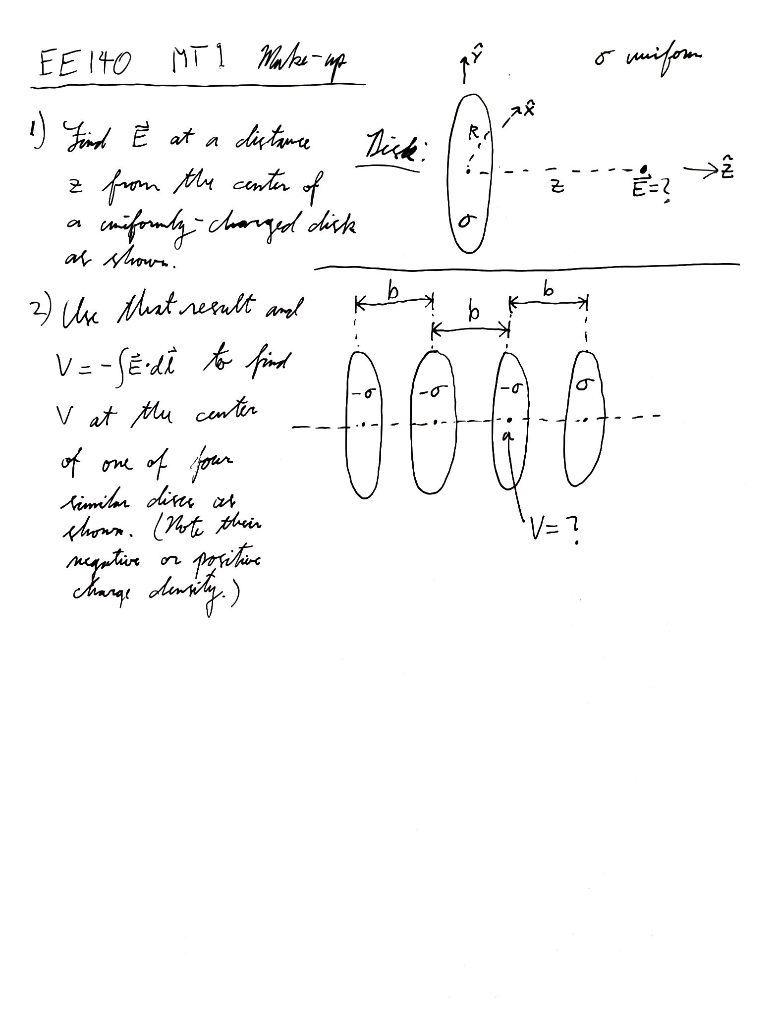 EE140 MT1 Make-up
σ uniform
1) Find E⃗ at a distance
z from the center of
a uniformly-charged disk
as shown.
Disk:
ŷ
x̂
R
z
E⃗=?
ẑ
σ
2) Use that result and
V = -∫E⃗·dl⃗ to find
V at the center
of one of four
similar discs as
shown. (Note their
negative or positive
charge density.)
b b b
-σ -σ -σ σ
a
V=?